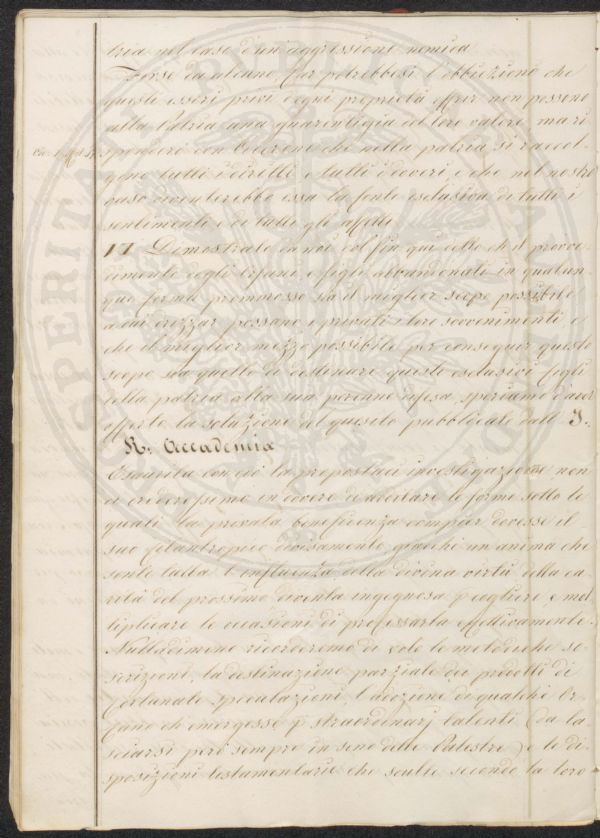 tria nel caso d'un aggressione nemica
Forse da alcuno far potrebbesi l'obbiezione che
questi esseri privi d'ogni proprietà offrir non possono
alla Patria una guarentigia del loro valore ma ri
sponderò con Cicerone che nella patria si raccol-
gono tutti i diritti e tutti i doveri, e che nel nostro
caso diventerebbe essa la fonte esclusiva di tutti i
sentimenti e di tutti gli affetti
17 Demostrato da noi col fin qui detto ch'il provve
dimento degli Orfani, e figli abbandonati in qualun-
que forma promosso sia il miglior scopo possibile
a cui drizzar possano i privati i loro sovvenimenti, e
che il miglior mezzo possibile per conseguir questo
scopo sia quello di destinare questi esclusivi figli
della patria alla sua perenne difesa, speriamo d'aver
offerto la soluzione del quesito pubblicato dall' I.
R. Accademia
Esaurita con ciò la propostaci investigazione non
ci crederessimo in dovere di additare le forme sotto le
quali la privata beneficenza compier dovesse il
suo filantropico divisamento, giacchè un anima che
sente tutta l'influenza della divina virtù della ca-
rità del prossimo diventa ingegnosa p cogliere e mol
tiplicare le occasioni di professarla effettivamente.
Nulladimeno ricorderemo di volo le metodiche so-
scrizioni, la destinazione parziale dei prodotti di
fortunate speculazioni, l'adozione di qualche Or-
fano ch'emergesse p straordinarj talenti (da la-
sciarsi però sempre in seno delle Palestre) e le di-
sposizioni testamentarie che sculte secondo la loro